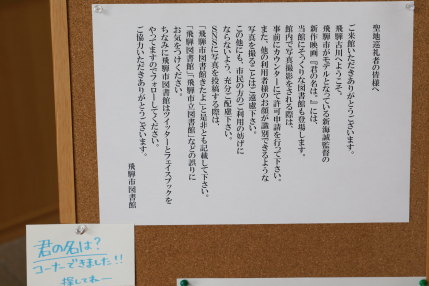 聖地巡礼者の皆様へ
ご来館いただきありがとうございます。
飛騨古川へようこそ。
飛騨市がモデルとなっている新海誠監督の
新作映画『君の名は。』には、
当館にそっくりな図書館も登場します。
館内で写真撮影をされる際は、
事前にカウンターにて許可申請を行って下さい。
また、他の利用者様のお顔が識別できるような
写真を撮ることはご遠慮下さい。
この他にも、市民の方のご利用の妨げに
ならないよう、充分ご配慮下さい。
SNSに写真を投稿する際は、
「飛騨市図書館きたよ」と是非とも記載して下さい。
「飛騨図書館」「飛騨市立図書館」などの誤りに
お気をつけください。
ちなみに飛騨市図書館はツイッターとフェイスブックを
やってますのでフォローしてください。
ご協力いただきありがとうございます。
飛騨市図書館
君の名は?
コーナーできました!!
探してねー